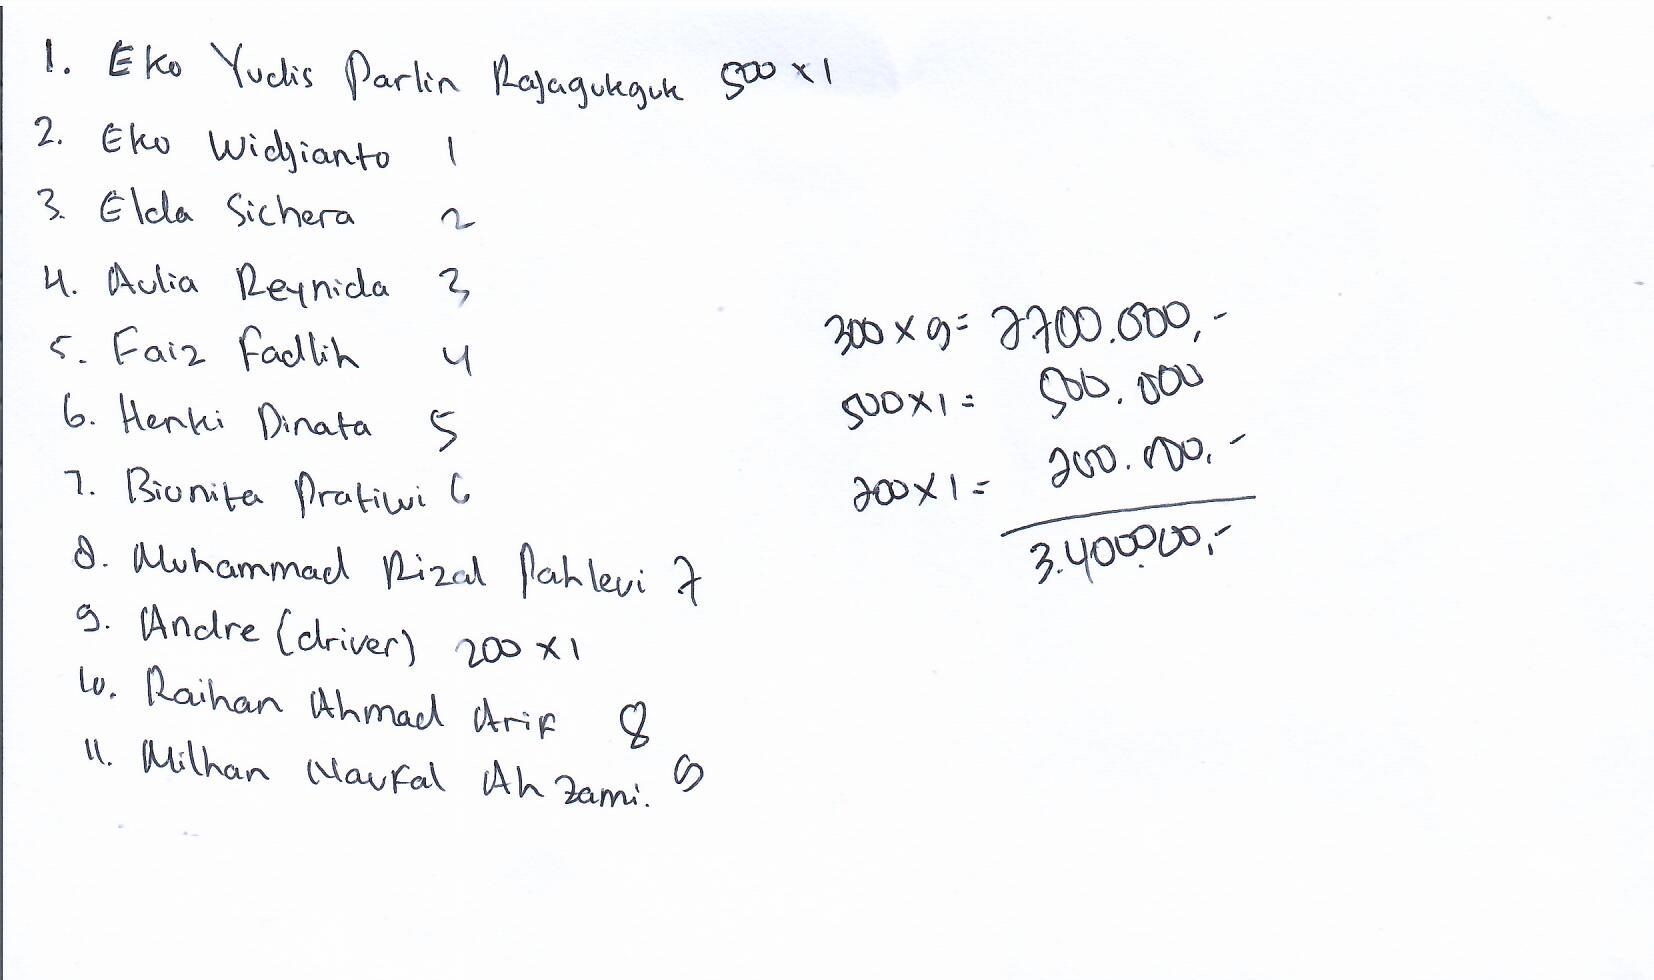 1. Eko Yudis Parlin Rajagukguk 500 x 1
2. Eko Widjianto 1
3. Elda Sichera 2
4. Aulia Reynida 3
5. Faiz Fadlih 4
6. Henki Dinata 5
7. Bionita Pratiwi 6
8. Muhammad Rizal Pahlevi 7
9. Andre (driver) 200 x 1
10. Raihan Ahmad Arif 8
11. Milhan Naufal Ah Zami. 9
300 x 9 = 2700.000,-
500 x 1 = 500.000
200 x 1 = 200.000,-
3.400.000,-